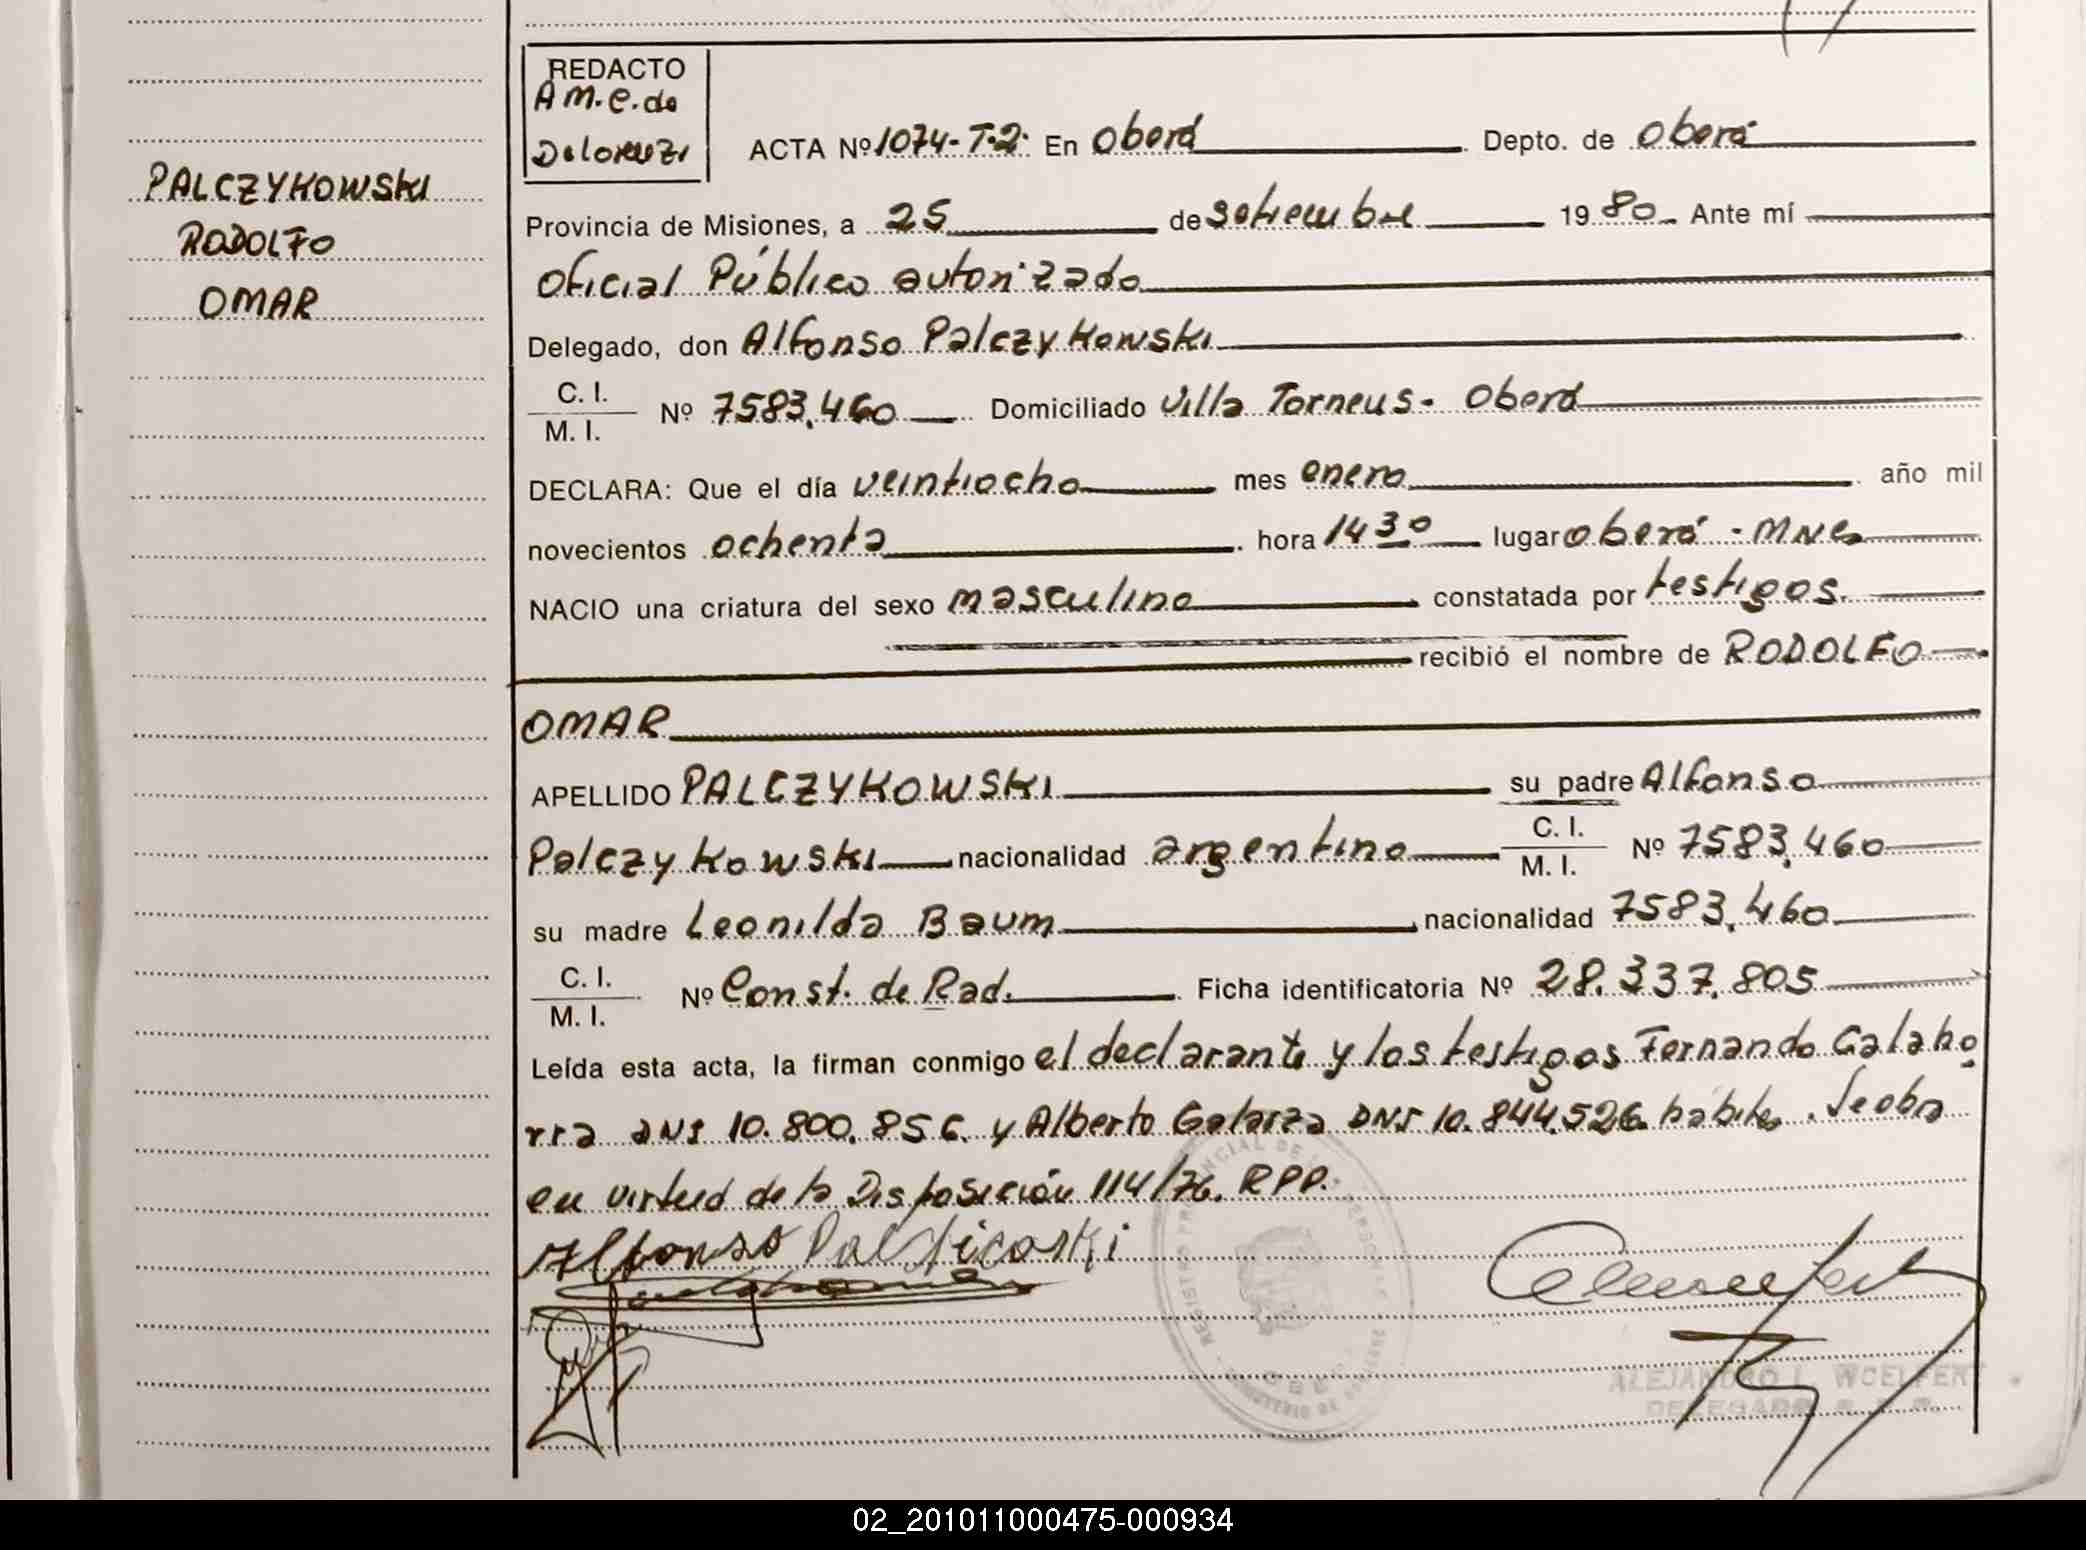 REDACTO
A M. E. de
Delorenzi
ACTA Nº 1074-T.2. En Oberá Depto. de Oberá
PALCZYKOWSKI
RODOLFO
OMAR
Provincia de Misiones, a 25 de setiembre 1980 Ante mí
Oficial Público autorizado
Delegado, don Alfonso Palczykowski
C. I.
M. I. Nº 7583.460 Domiciliado Villa Torneus - Oberá
DECLARA: Que el día veintiocho mes enero año mil
novecientos ochenta hora 14 30 lugar Oberá - MNES
NACIO una criatura del sexo masculino constatada por testigos.
recibió el nombre de RODOLFO
OMAR
APELLIDO PALCZYKOWSKI su padre Alfonso
Palczykowski nacionalidad argentino C. I. M. I. Nº 7583.460
su madre Leonilda Baum nacionalidad 7583.460
C. I.
M. I. Nº Const. de Rad. Ficha identificatoria Nº 28.337.805
Leída esta acta, la firman conmigo el declarante y los testigos Fernando Galaho
rra DNI 10.800.856. y Alberto Galarza DNI 10.844.526. hábiles. Se obra
en virtud de la Disposición 114/76. RPP.
Alfonso
ALEJANDRO L. WOELFERT
DELEGADO
02_201011000475-000934